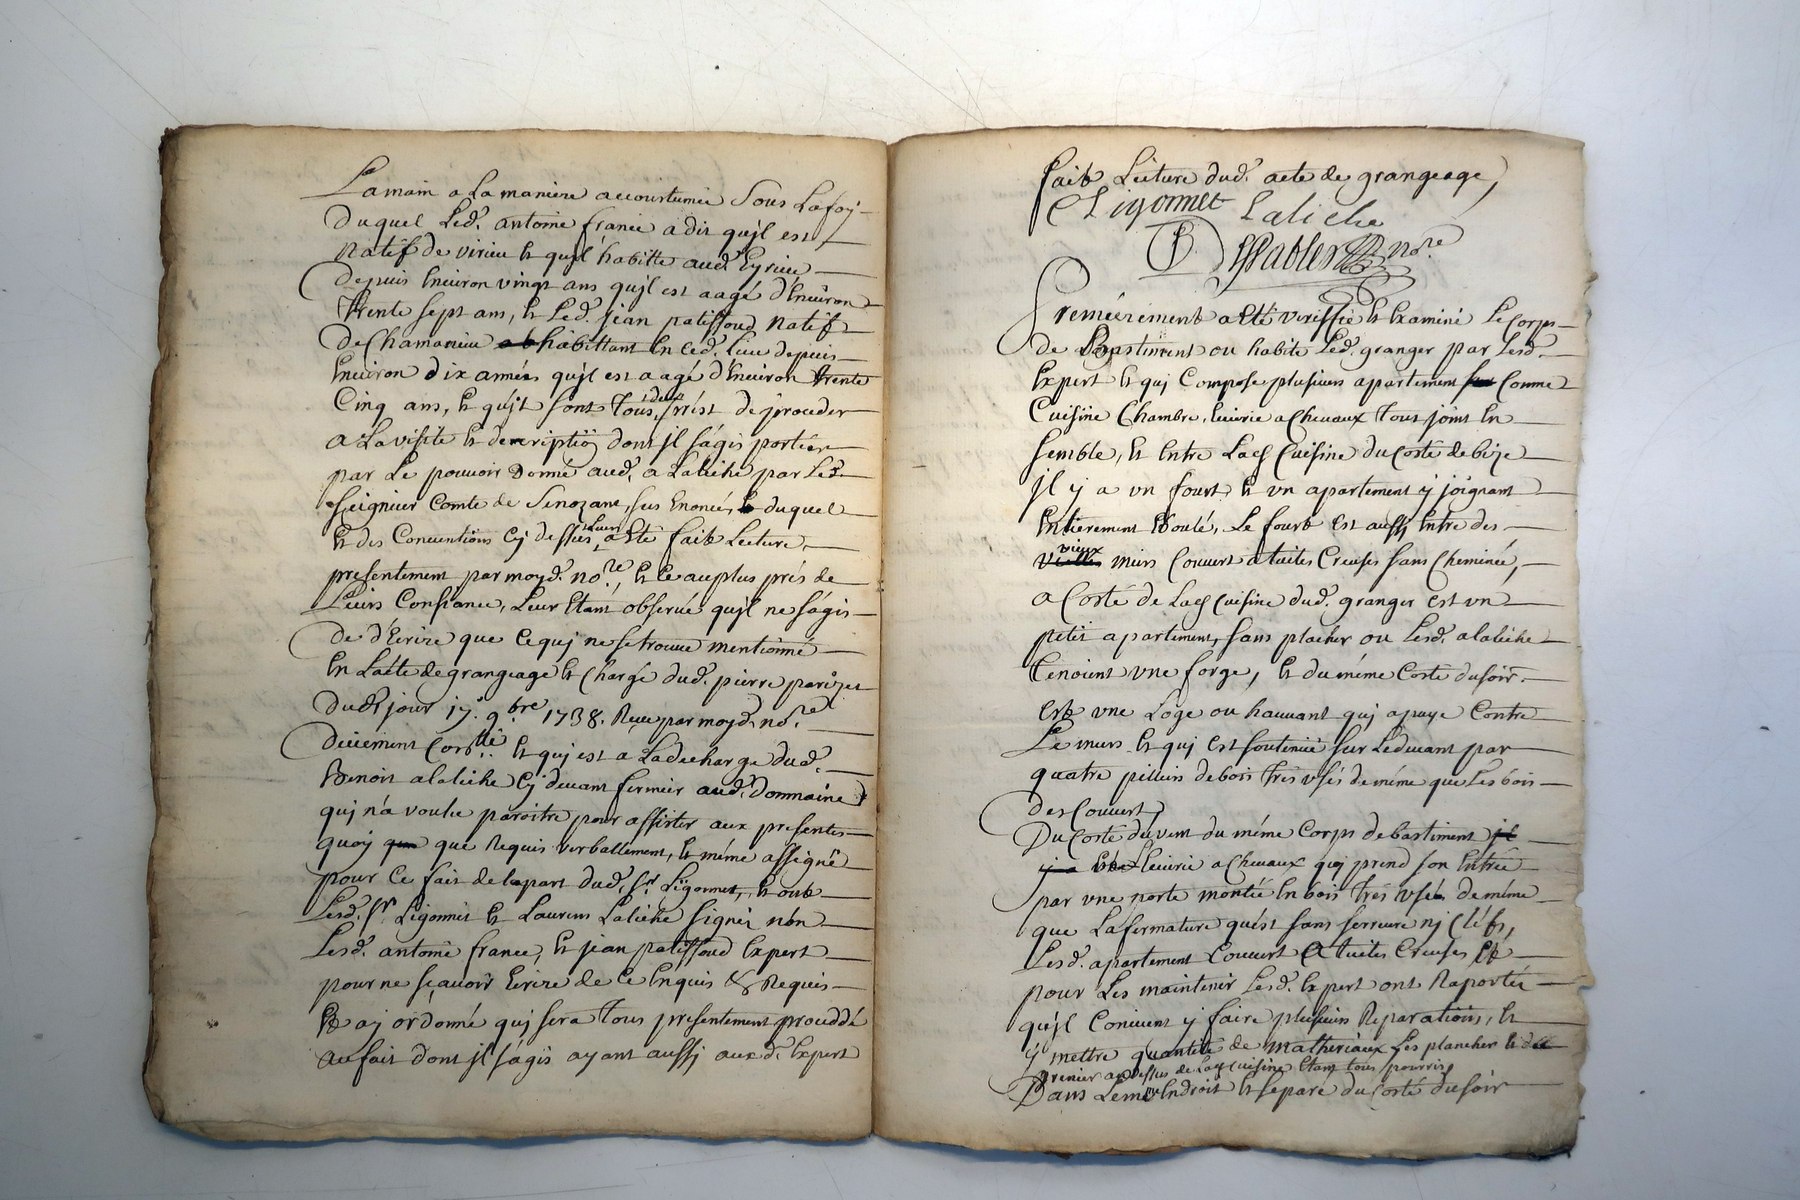 La main a La maniere accoustumée Sous Lafoy
Duquel Led. antoine france a dit qu'jl est
natif de virieu & qu'jl habitte aud. Eyrieu
depuis Enuiron vingt ans qu'jl est aagé d'Enuiron
Trente sept ans, & Led. jean patissoud natif
de Chamanieu habittant En Ced. Lieu depuis
Enuiron dix années qu'jl est aagé d'Enuiron Trente
Cinq ans, & qu'jl sont Tous deux prest de proceder
a La visite & descriptiõ dont jl s'agis portée
par Le pouvoir Donné aud. alaliche par Led.
Seignieur Comte de Senozane, sus Enoncé, duquel
& des Conuentions Cy dessus, a Eté fait Lecture
presentement par moyd. no.re, & Ce au plus prés de
Leurs Confiance, Leur Etant observé qu'jl ne s'agis
de d'Ecrire que Ce quj ne se trouue mentionné
En L'acte de grangeage & Chargé dud. pierre parizet
Dud. jour 17. 9.bre 1738. Reçu par moyd. no.re
Deüement & quj est a La decharge dud.
Benoit alaliche Cy deuant fermier aud. Dommaine
quj n'a voulu paroitre pour assister aux presentes
quoy que Requis verballement, & même assigné
pour Ce fait de la part dud. S.r Ligonnet, & ont
Lesd. S.r Ligonnet & Laurens Laliche signés non
Lesd. antoine france, & jean patissoud Expert
pour ne sçauoir Ecrire de Ce Enquis & Requis
Et aj ordonné quj sera Tous presentement proceddé
au fait dont jl s'agis ayant aussj auxd. Expert
fait Lecture dud. acte de grangeage,
Ligonnet Laliche
no.re
Premierement a Eté veriffié & Examiné Le Corps
de Bastiment ou habite Led. granger par Lesd.
Expert & quj Compose plusieurs apartement Comme
Cuisine Chambre, Ecuirie a Cheuaux Tous joint En
semble, & Entre Lad. Cuisine du Costé de bize
jl y a vn fourt & vn apartement y joignant
Entierement Ecoulé, Le fourt Est aussj Entre des
vieux murs Couuert a tuiles Creuses sans Cheminée,
a Costé de Lad. Cuisine dud. granger est vn
petit apartement, sans placher ou Lesd. alaliche
Tenoient vne forge, & du même Costé du soir
est vne Loge ou hauuant quj apuye Contre
Le murs & quj est soutenüe sur Leduant par
quatre pilliers de bois trés vsés de même que Les bois
des Couuert,
Du Costé du vent du même Corps de bastiment
Ecuirie a Cheuaux quj prend son Entrée
par vne porte montée En bois Trés vsée de même
que La fermature qu'est sans serrure nj Cléfs,
Lesd. apartement Couuert a tuiles Creuses &
pour Les maintenir Lesd. Expert ont Raporté
qu'jl Conuient y faire plusieurs Reparations, &
y mettre quantité de matheriaux Les plancher &
grenier au dessus de Lad. cuisine Etant tous pourris
Dans Leme Endroit & separé du Costé du soir